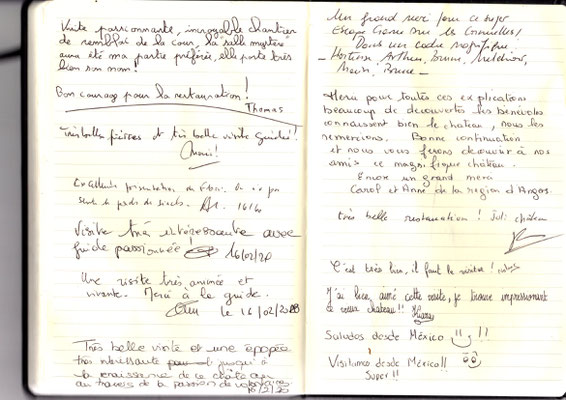 Visite passionnante, incroyable chantier
de remblai de la cour, la salle mystère
aura été ma partie préférée, elle porte très
bien son nom !
Bon courage pour la restauration !
Thomas
Très belles pierres et très belle visite guidée !
Merci !
Excellente présentation
Visite très intéressante avec
guide passionnée ! 16/02/20
Une visite très animée et
vivante. Merci à la guide.
le 16/02/2020
Très belle visite et une épopée
très intéressante jusqu'à
la renaissance de ce château
au travers de la passion de volontaires.
16/2/20
Un grand merci pour ce super
Escape Game sur les
Dans un cadre magnifique.
- Hortense, Arthur,
Merci pour toutes ces explications
beaucoup de découvertes les bénévoles
connaissent bien le château, nous les
remercions. Bonne continuation
et nous vous ferons découvrir à nos
amis ce magnifique château.
Encore un grand merci
Carol et Anne de la région d'Angers.
très belle restauration ! Joli château
C'est très bien, il faut le visiter !
J'ai bien aimé cette visite, je trouve impressionnant
ce vieux château !!
Saludos desde México !!
Visitamos desde México!!
Super!!